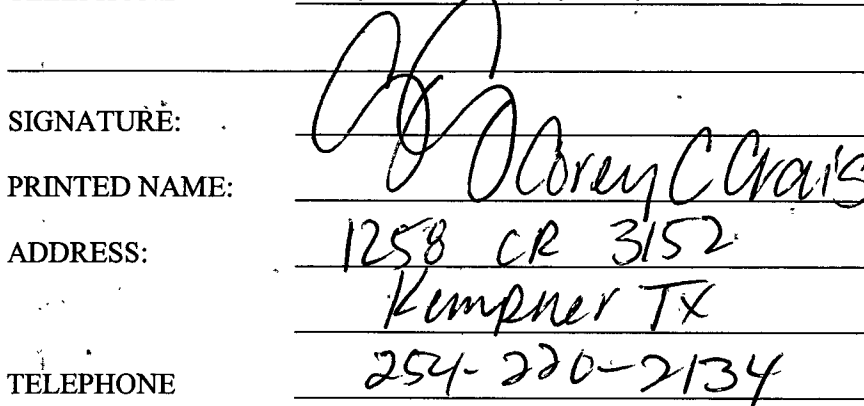 SIGNATURE:
PRINTED NAME: Corey C Crais
ADDRESS: 1258 CR 3152
Kempner TX
TELEPHONE 254-220-2134